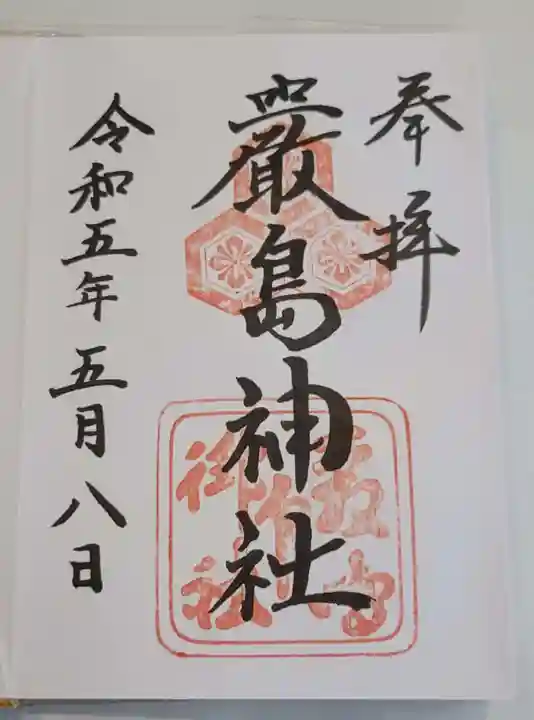 奉拝
嚴島神社
令和五年五月八日